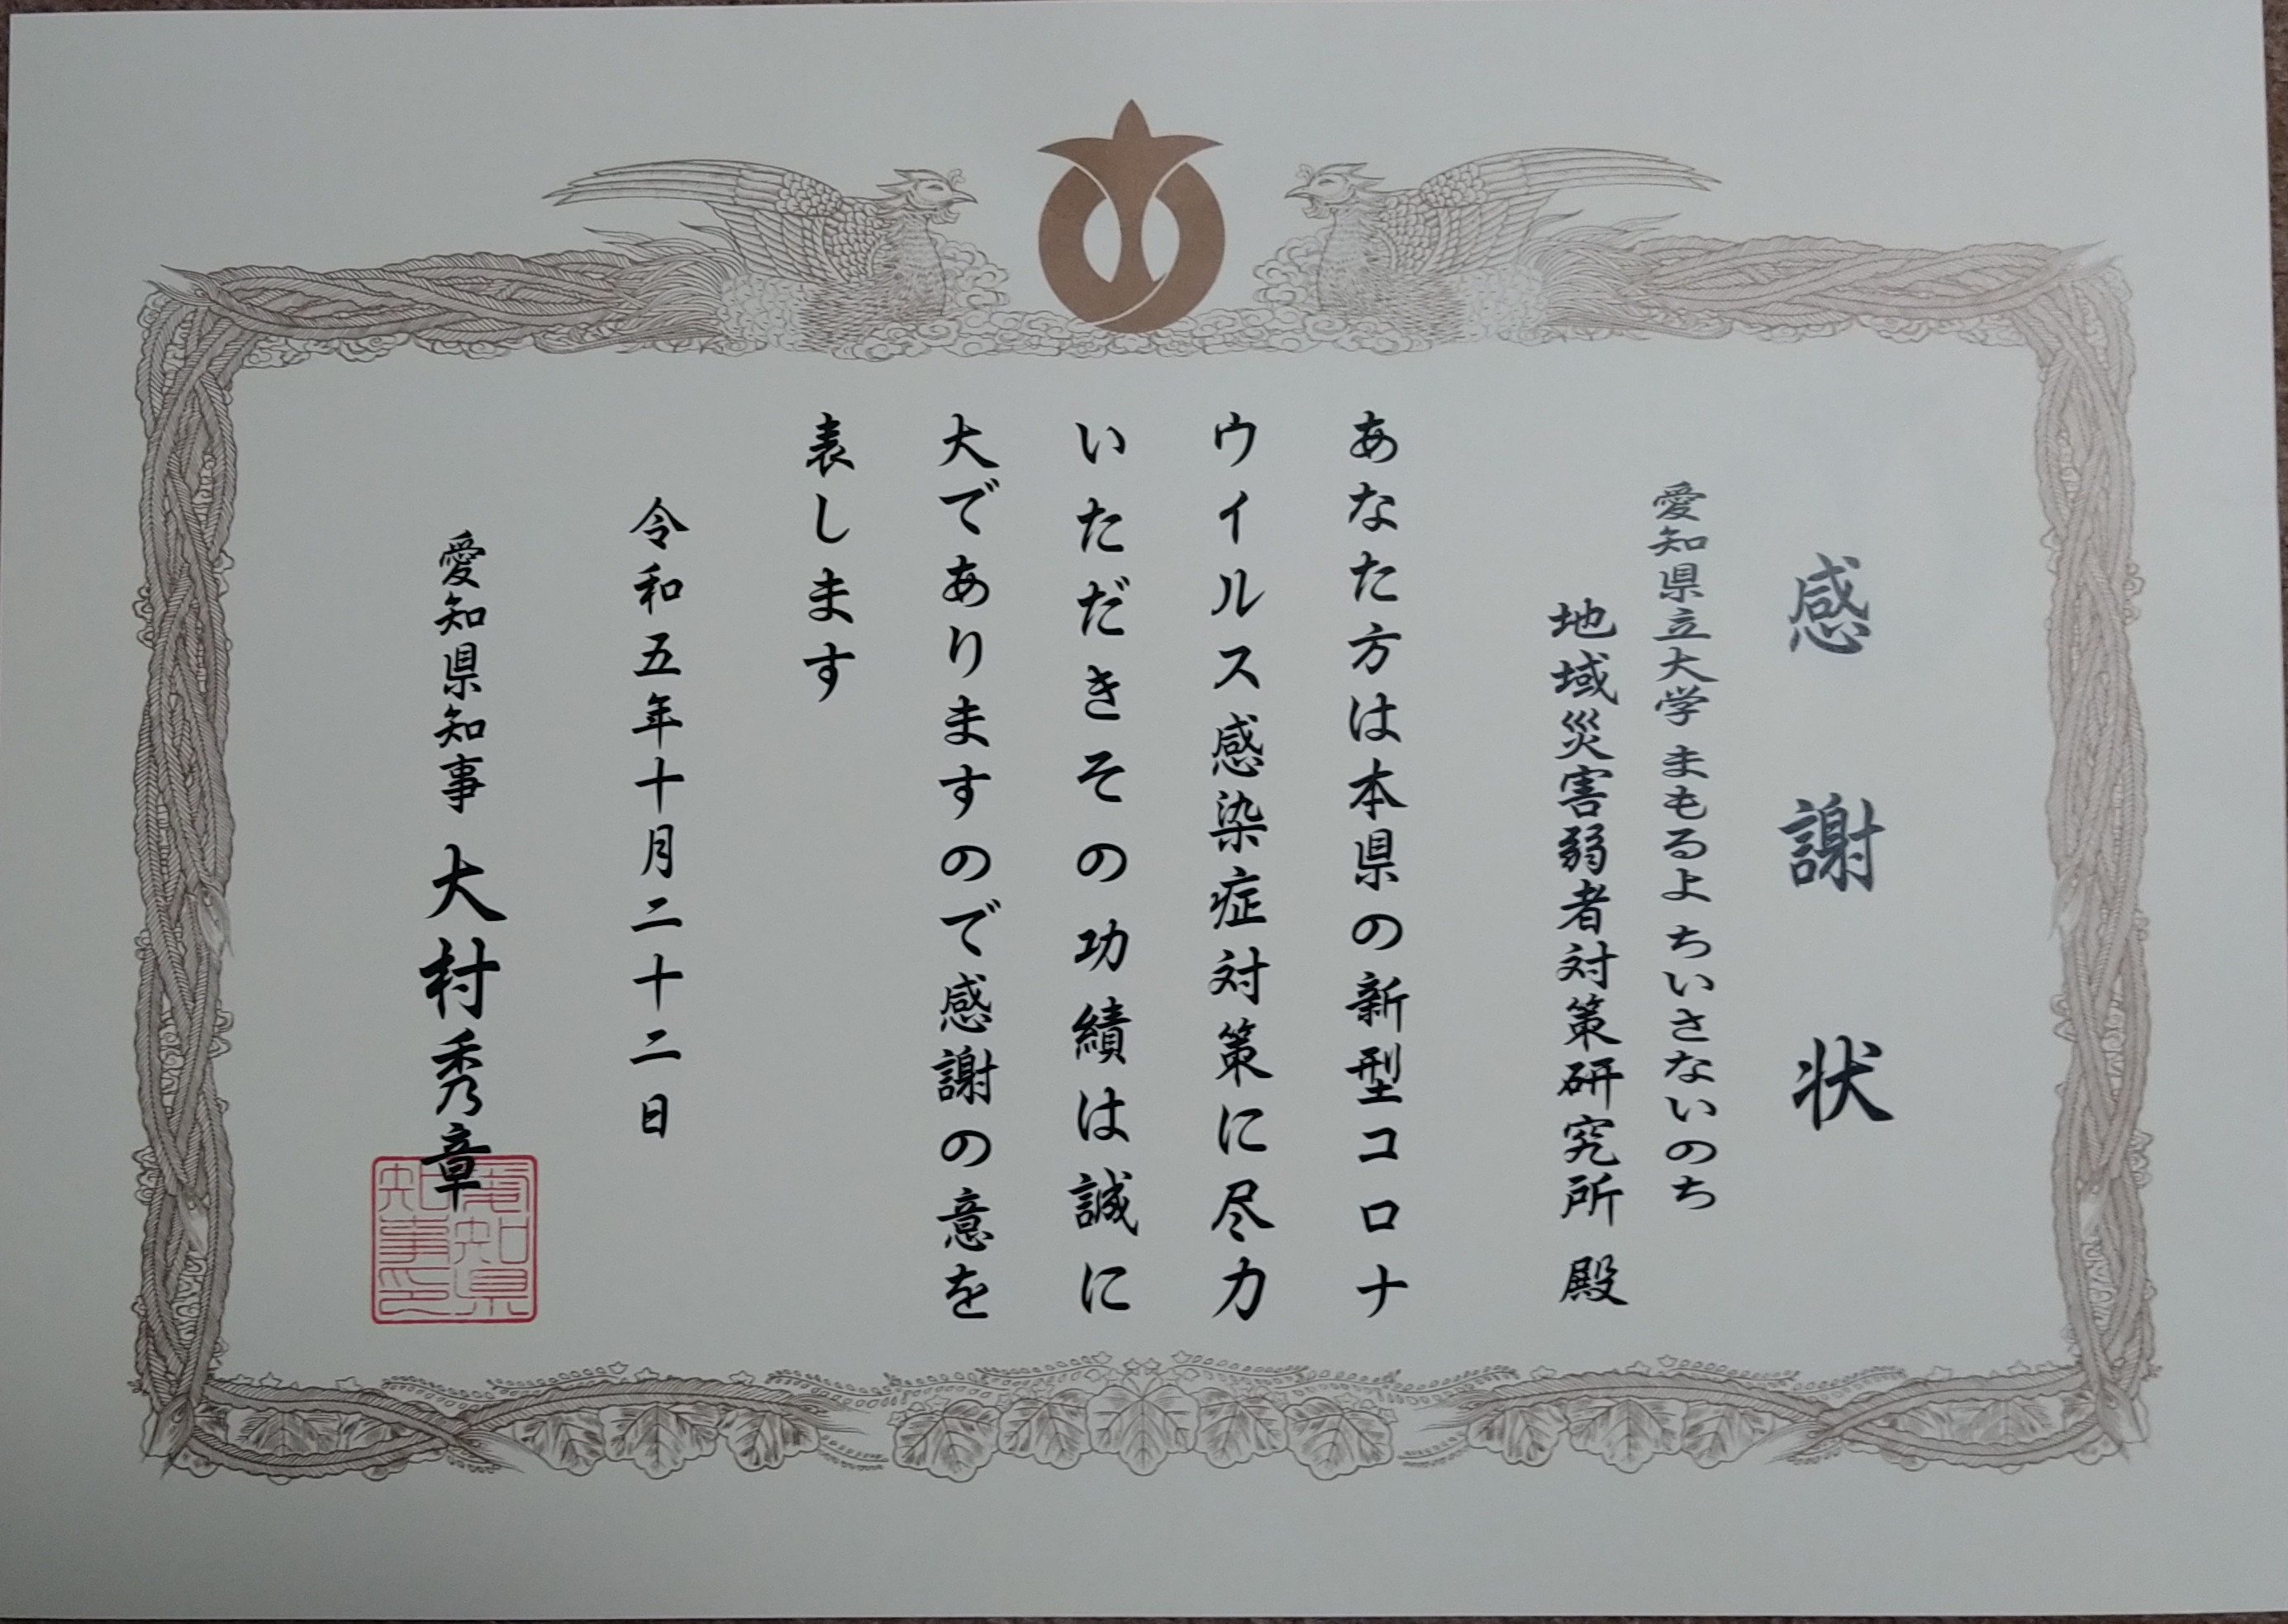 感謝状
愛知県立大学 まもるよ ちいさないのち
地域災害弱者対策研究所 殿
あなた方は本県の新型コロナ
ウイルス感染症対策に尽力
いただきその功績は誠に
大でありますので感謝の意を
表します
令和五年十月二十二日
愛知県知事 大村秀章
愛知県
知事印